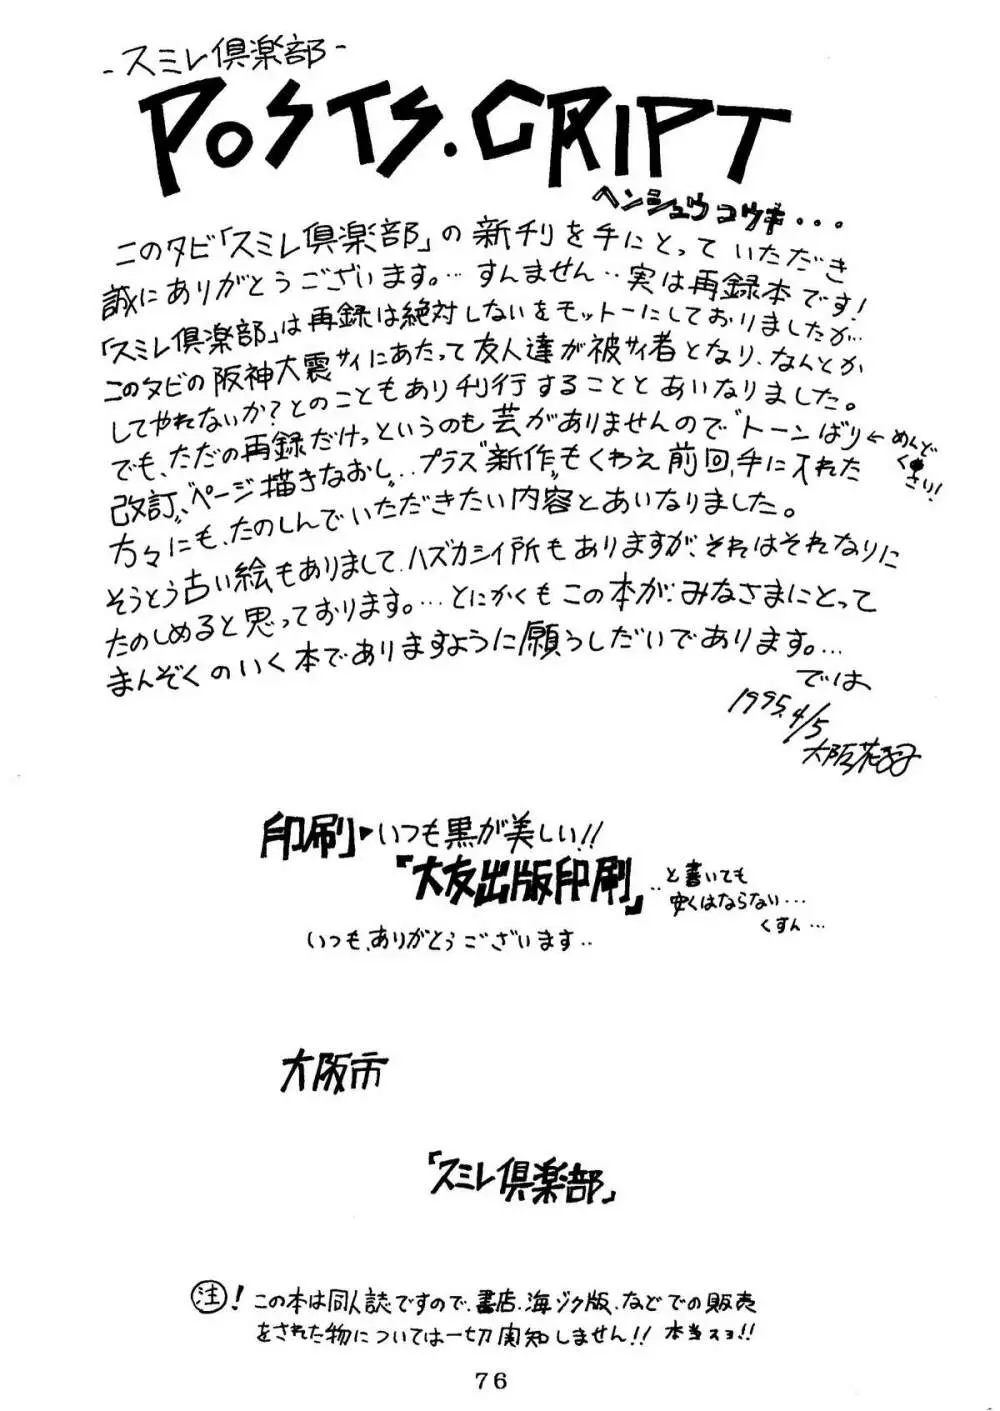 -スミレ倶楽部-
POSTS.CRIPT
ヘンシュウコウキ...
このタビ「スミレ倶楽部」の新刊を手にとっていただき
誠にありがとうございます。… すんません‥実は再録本です!
「スミレ倶楽部」は再録は絶対しないをモットーにしておりましたが…
このタビの阪神大震サイにあたって友人達が被サイ者となり、なんとか
してやれないか?とのこともあり刊行することとあいなりました。
でも、ただの再録だけっというのも芸がありませんので〝トーンばり
←めんどくさい!
改訂〟、〝ページ描きなおし〟‥プラス〝新作〟もくわえ前回、手に入れた
方々にも、たのしんでいただきたい内容とあいなりました。
そうとう古い絵もありまして、ハズカシイ所もありますが、それはそれなりに
たのしめると思っております。…とにかくもこの本が、みなさまにとって
まんぞくのいく本でありますように願うしだいであります。…
では、
1995.4/5
大阪花子
印刷▶いつも黒が美しい!!
「大友出版印刷」
‥と書いても
安くはならない…
くすん…
いつも、ありがとうございます‥
大阪市
「スミレ倶楽部」
注! この本は同人誌ですので、書店、海ゾク版、などでの販売
をされた物については一切関知しません!! 本当スヨ!!
76